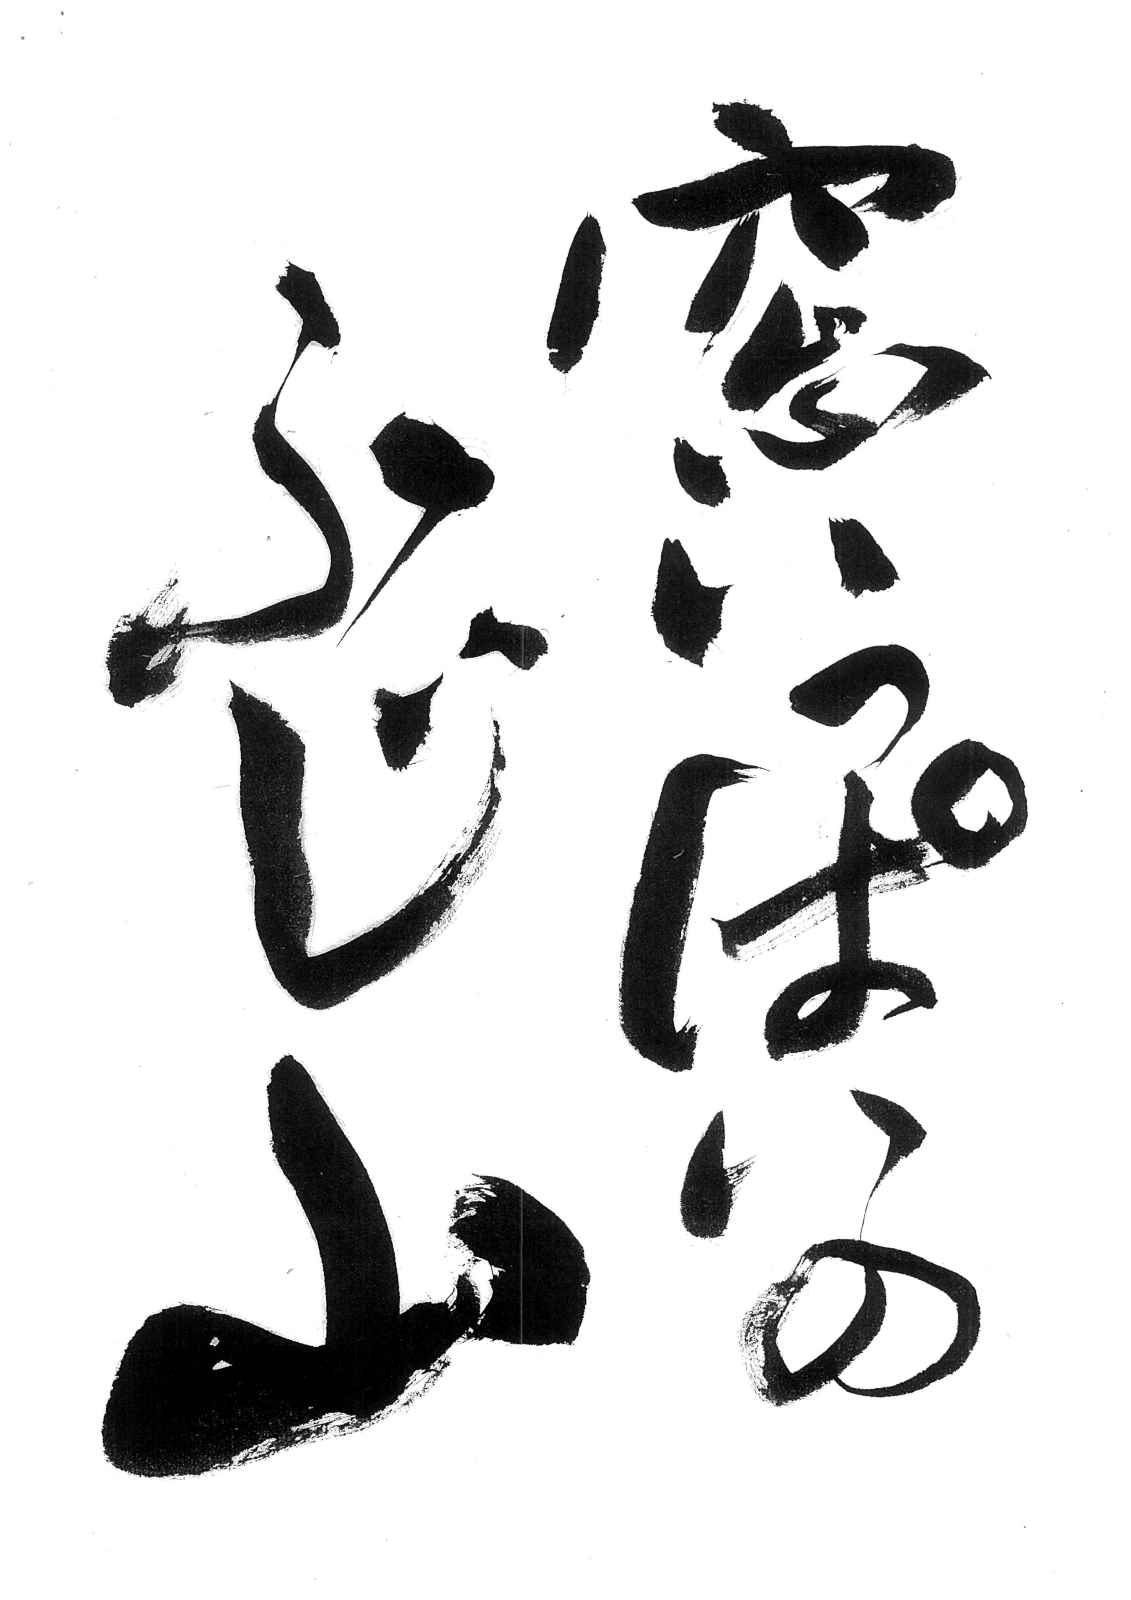 窓いっぱいの
ふじ山